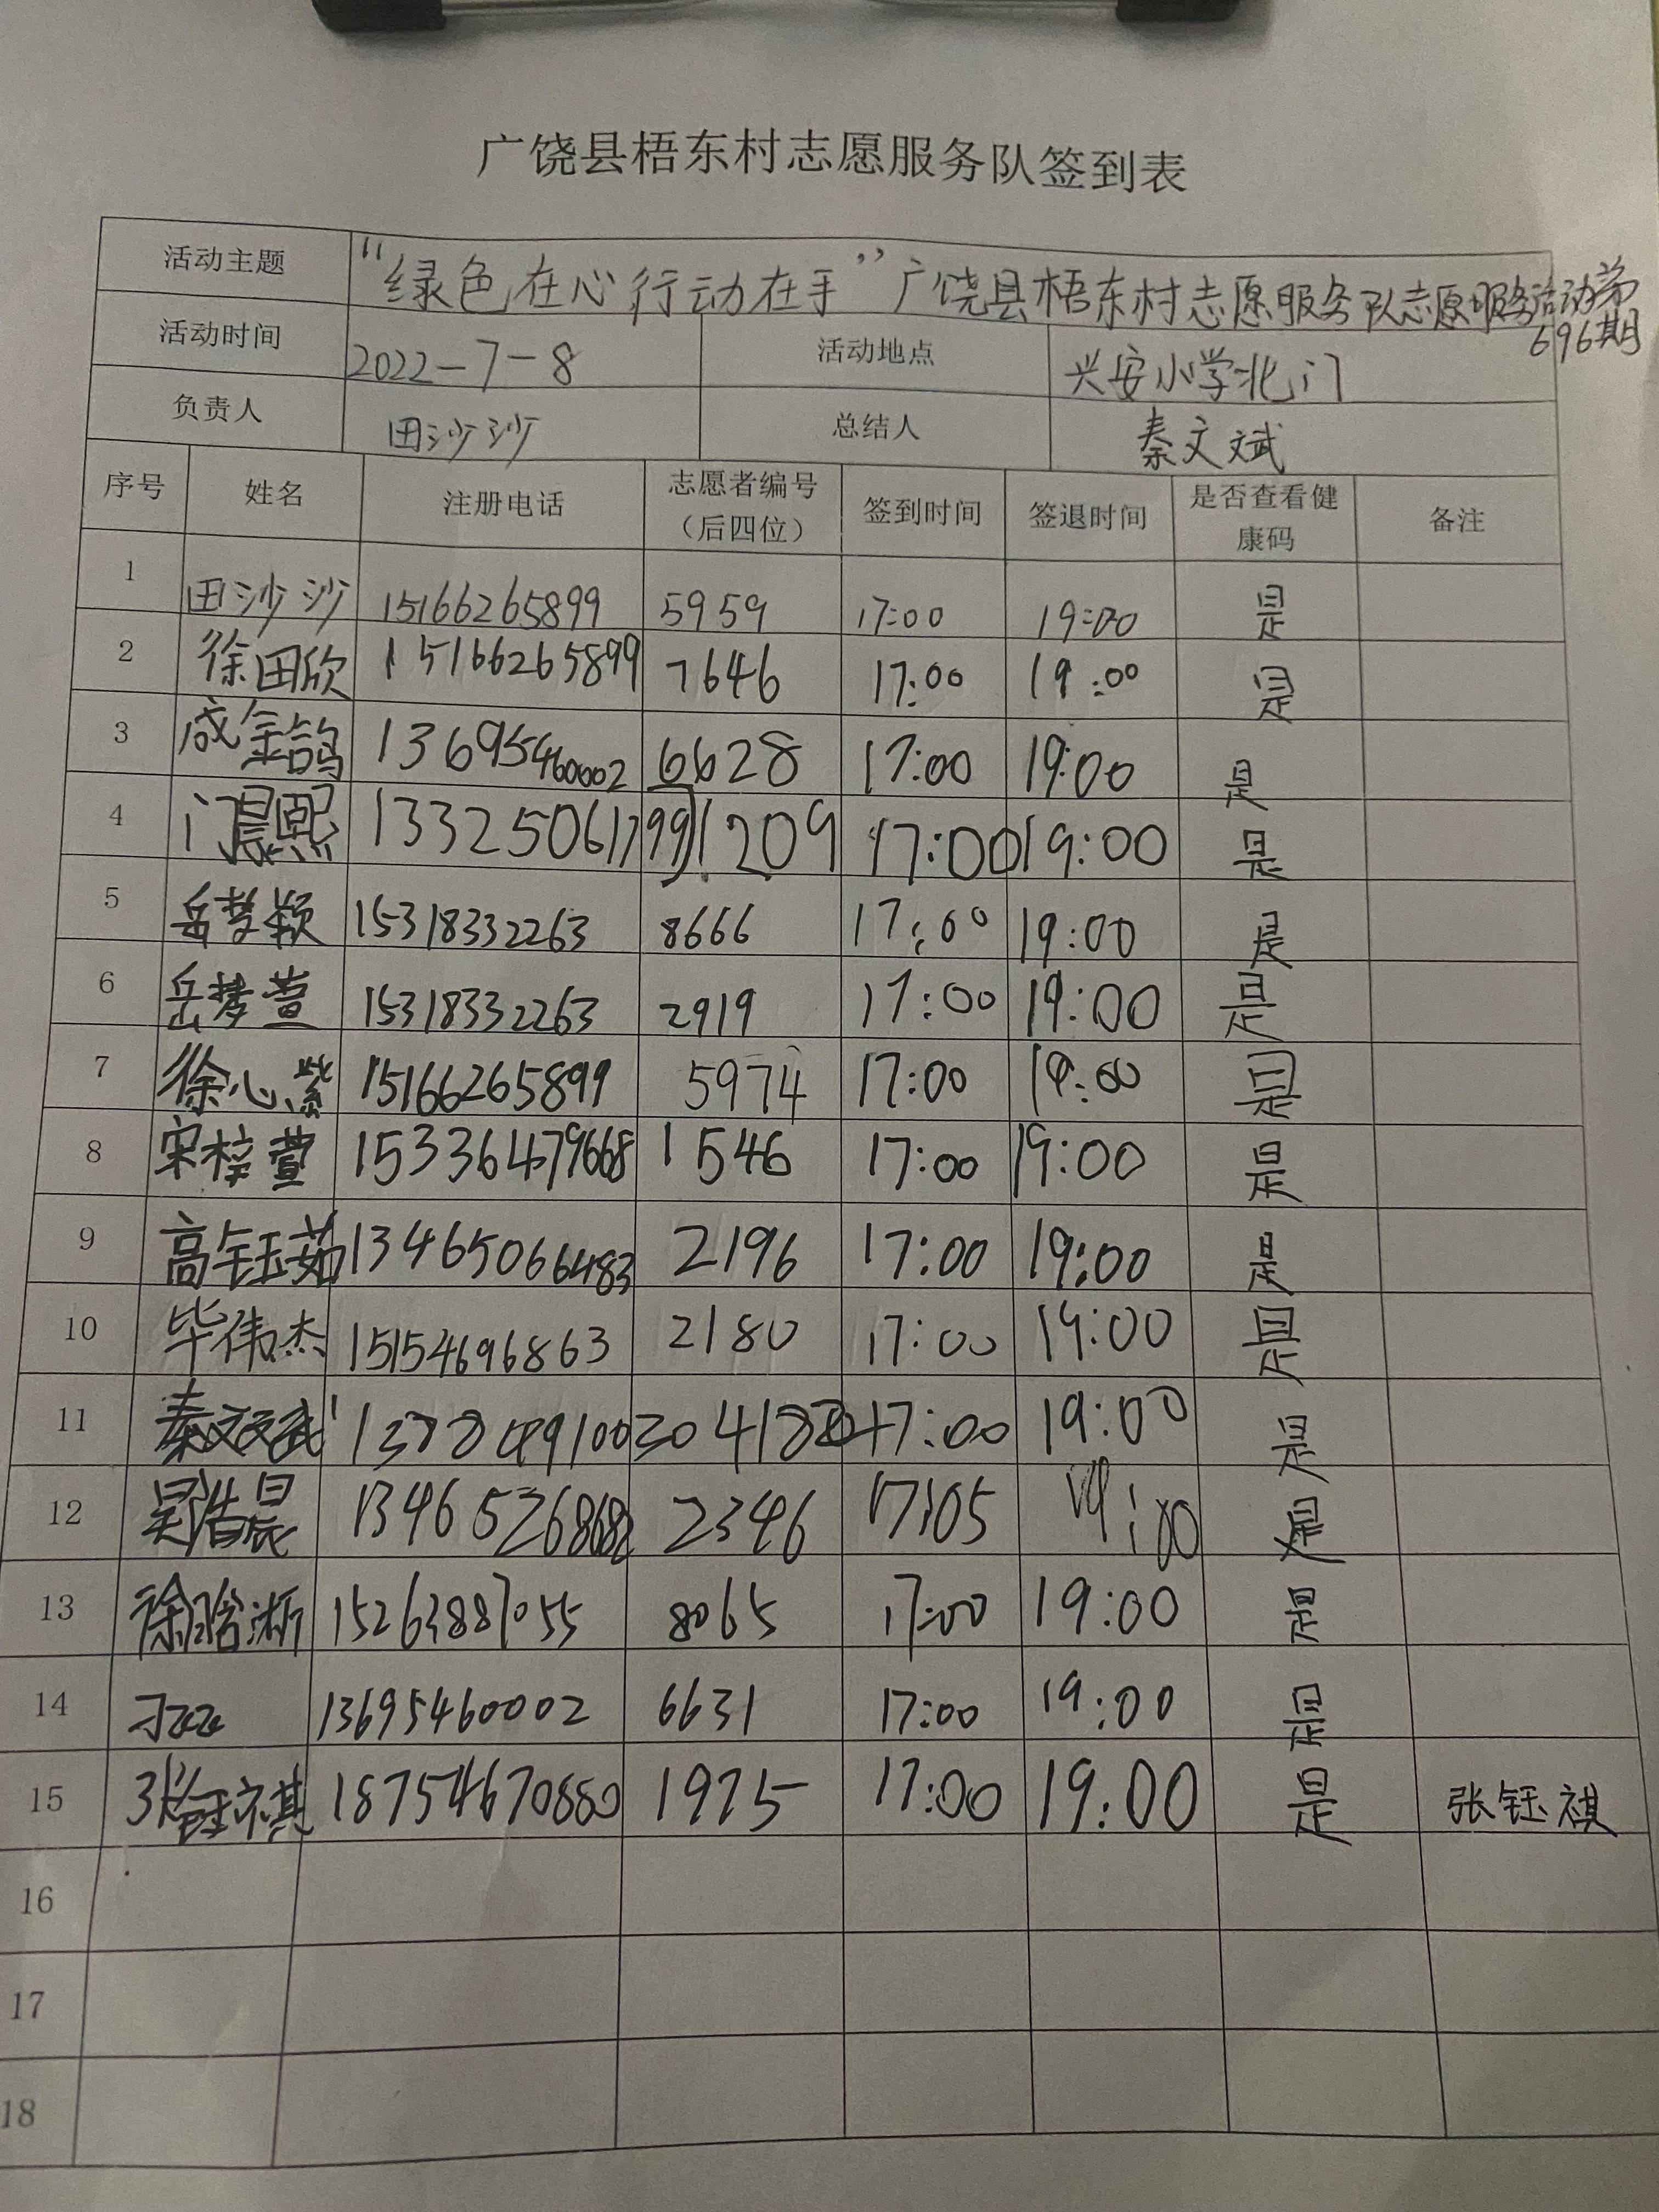 广饶县梧东村志愿服务队签到表
活动主题 “绿色在心行动在手”广饶县梧东村志愿服务队志愿服务活动第
696期
活动时间 2022-7-8 活动地点 兴安小学北门
负责人 田沙沙 总结人 秦文斌
序号 姓名 注册电话 志愿者编号（后四位） 签到时间 签退时间 是否查看健康码 备注
1 田沙沙 15166265899 5959 17:00 19:00 是
2 徐田欣 15166265899 7646 17:00 19:00 是
3 成金鸽 13695460002 6628 17:00 19:00 是
4 门晨熙 13325061799 1209 17:00 19:00 是
5 岳梦颖 15318332263 8666 17:00 19:00 是
6 岳梦萱 15318332263 2919 17:00 19:00 是
7 徐心紫 15166265899 5974 17:00 19:00 是
8 宋梓萱 15336479668 1546 17:00 19:00 是
9 高钰茹 13465066483 2196 17:00 19:00 是
10 毕伟杰 15154696863 2180 17:00 19:00 是
11 秦文斌 17:00 19:00 是
12 吴浩晨 13465268682 2346 17:05 19:00 是
13 徐晗淅 15263887055 8065 17:00 19:00 是
14 13695460002 6631 17:00 19:00 是
15 张钰祺 18754670880 1975 17:00 19:00 是 张钰祺
16
17
18